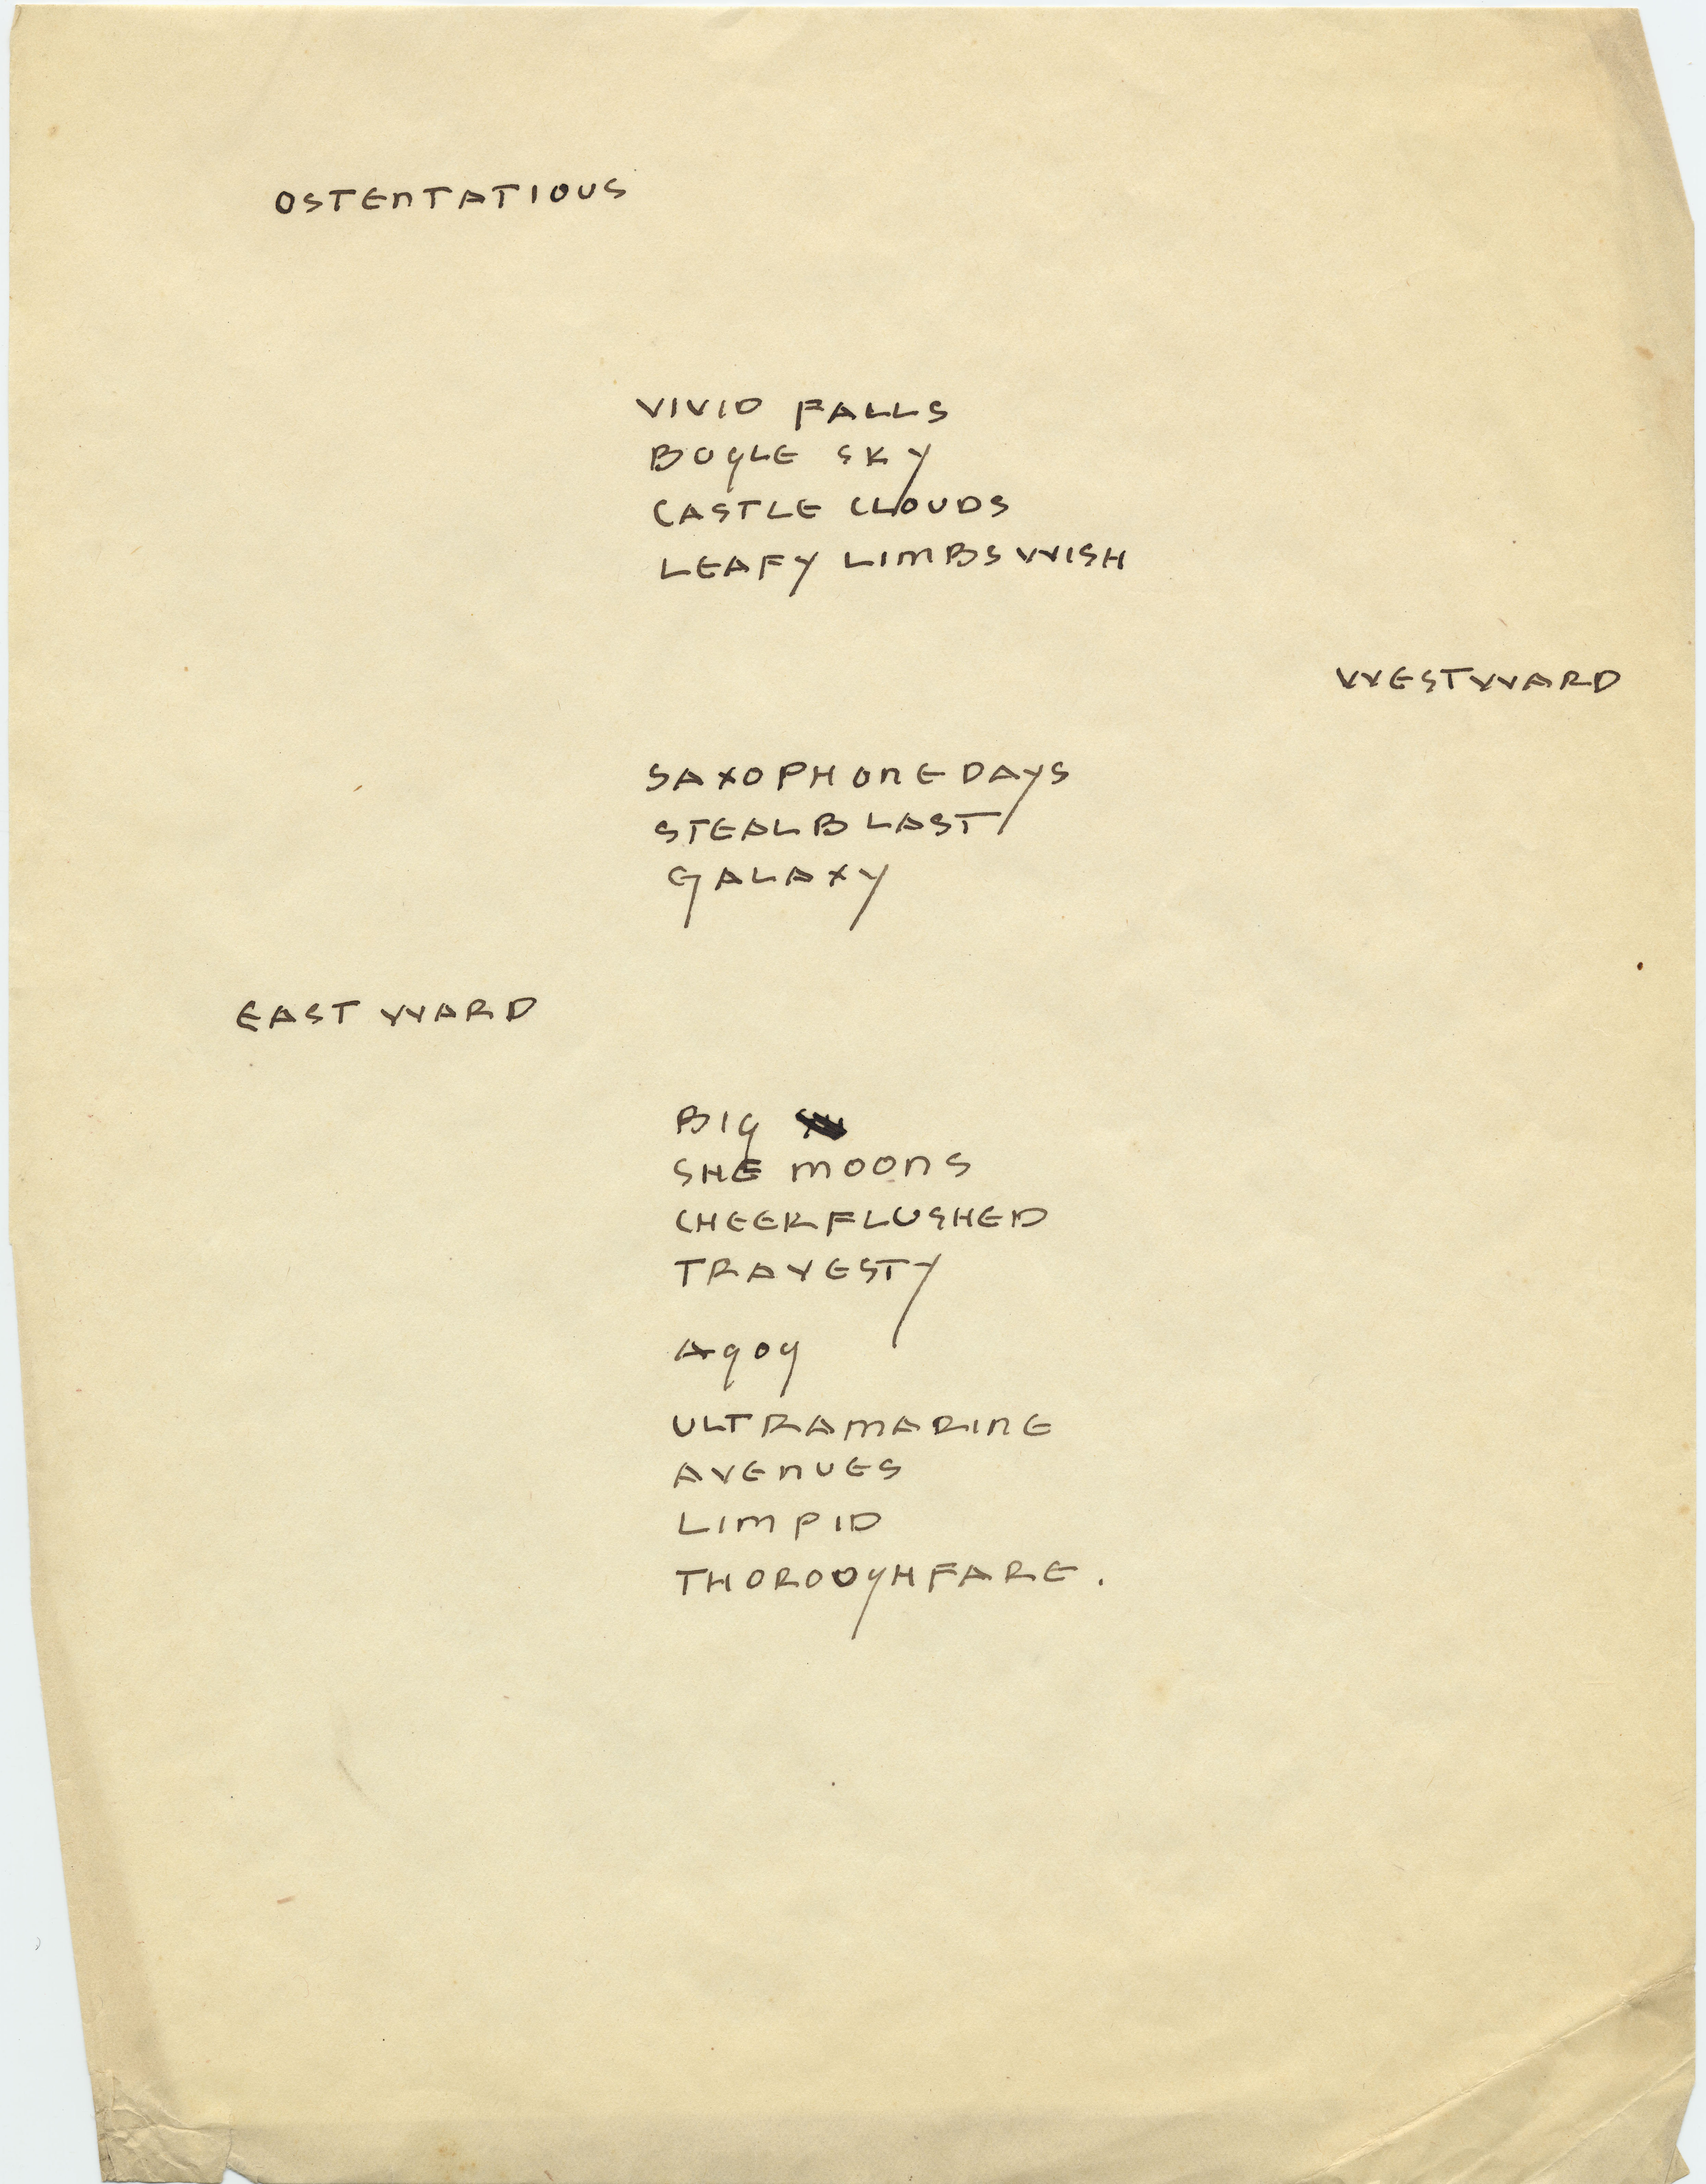 OSTENTATIOUS
VIVID FALLS
BOGLE SKY
CASTLE CLOUDS
LEAFY LIMBS WISH
WESTWARD
SAXOPHONE DAYS
STEAL BLAST
GALAXY
EASTWARD
BIG
SHE MOONS
CHEEKFLUSHED
TRAVESTY
AGOG
ULTRAMARINE
AVENUES
LIMPID
THOROUGHFARE.